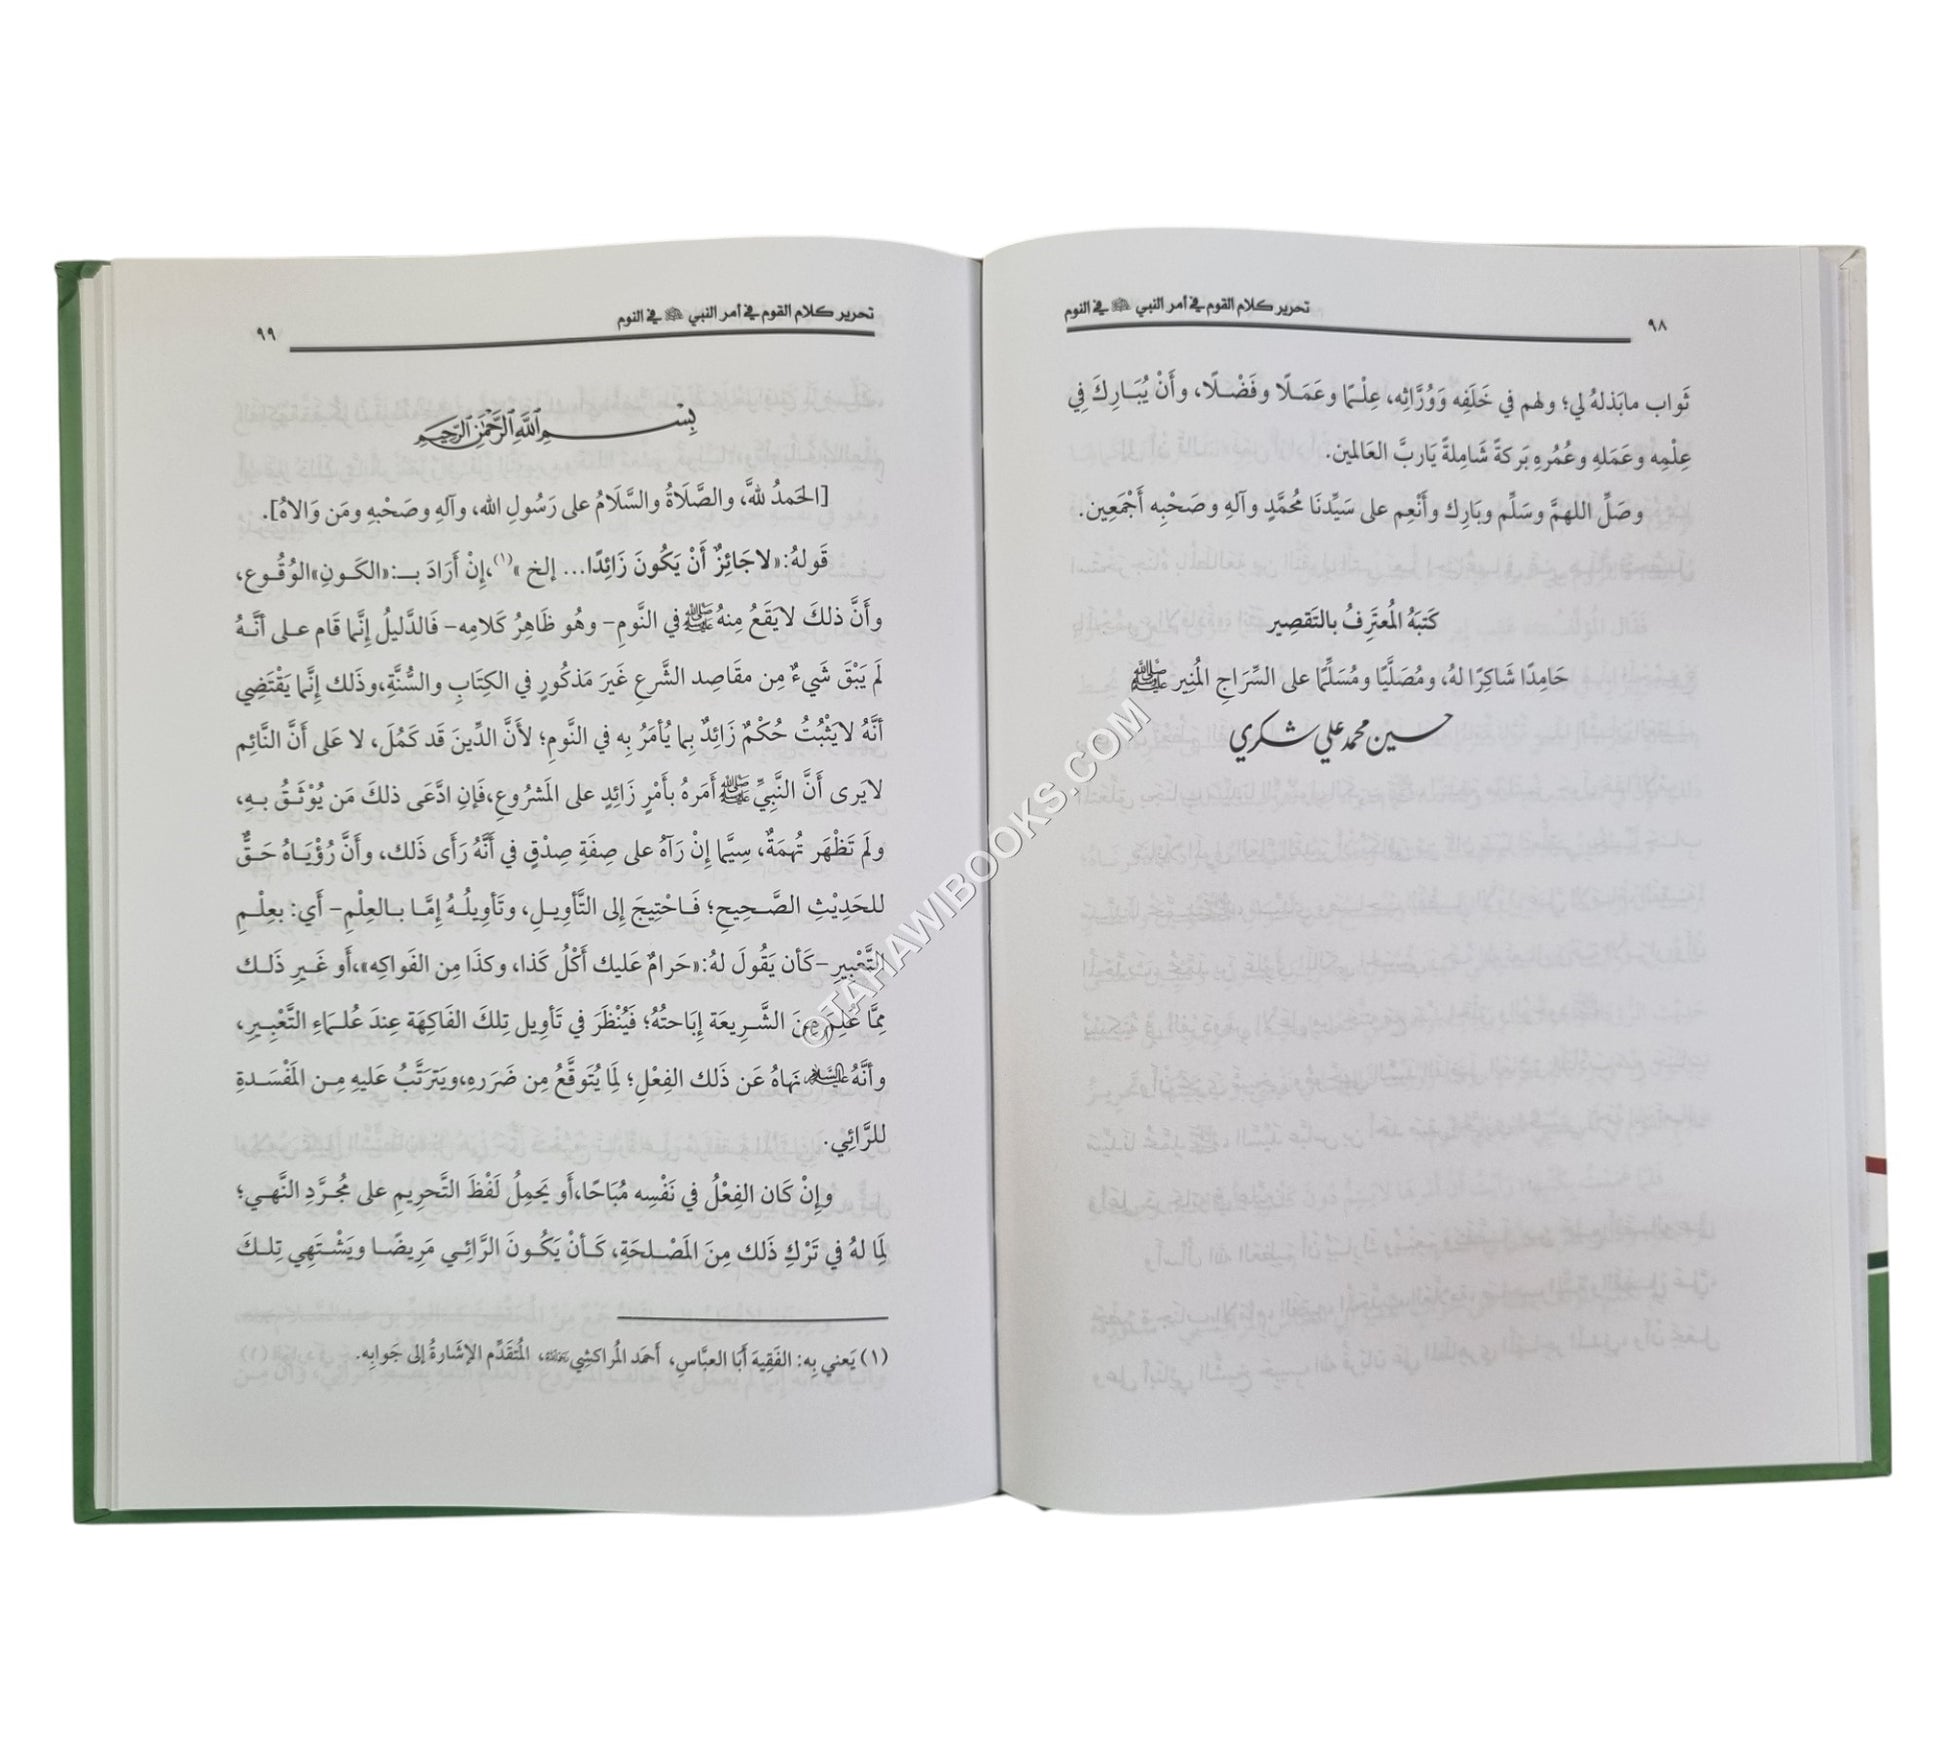 ٩٨
تحرير كلام القوم في أمر النبي ﷺ في النوم
ثَواب مابَذلهُ لي؛ ولهم في خَلَفِه وَوُرَّاثِه، عِلْمًا وعَمَـلًا وفَضْـلًا، وأَنْ يُبَـارِكَ فِي
عِلْمِه وعَمَلهِ وعُمُرهِ بَركةً شَامِلةً يَاربَّ العَالمين.
وصَلِّ اللهمَّ وسَلِّم وبَارِك وأَنْعِم على سَيِّدنَا مُحَمَّدٍ وآلهِ وصَحْبِه أَجْمَعِين.
كَتبَهُ المُعتَرِفُ بالتَقصِير
حَامِدًا شَاكِرًا لهُ، ومُصَلِّيًا ومُسَلِّمًا على السِّرَاجِ المُنِير ﷺ
حسين محمد علي شكري
تحرير كلام القوم في أمر النبي ﷺ في النوم
٩٩
بِسْمِ ٱللَّهِ ٱلرَّحْمَٰنِ ٱلرَّحِيمِ
[الحَمدُ للهِ، والصَّلَاةُ والسَّلَامُ على رَسُولِ الله، وآلهِ وصَحْبهِ ومَن وَالاهُ].
قَولهُ: «لا جَائِزٌ أَنْ يَكُونَ زَائِدًا... إلخ »(١)، إنْ أَرَادَ بـ: «الكَـونِ» الوُقُـوع،
وأَنَّ ذلكَ لا يَقَعُ مِنهُ ﷺ في النَّومِ - وهُو ظَاهِرُ كَلامِه - فَالدَّليلُ إنَّما قَام علـى أنَّـهُ
لَم يَبْقَ شَيءٌ مِن مقَاصِد الشَّرعِ غَيرَ مَذكُورٍ في الكِتَابِ والسُّنَّةِ، وذَلك إنَّما يَقْتَضِي
أنَّهُ لا يَثْبُتُ حُكْمٌ زَائِدٌ بِما يُأمَرُ بِه في النَّومِ؛ لأَنَّ الدِّينَ قَد كَمُلَ، لا عَلى أَنَّ النَّائِم
لا يَرى أَنَّ النَّبيِّ ﷺ أَمَرهُ بأَمْرٍ زَائِدٍ على المَشرُوعِ، فَإنِ ادَّعَى ذلكَ مَن يُوْثَـقُ بـهِ،
ولَم تَظْهَر تُهمَةٌ، سِيَّما إنْ رَآهُ على صِفَةِ صِدْقٍ في أَنَّهُ رَأَى ذَلك، وأَنَّ رُؤْيَـاهُ حَـقٌّ
للحَدِيْثِ الصَّـحِيحِ؛ فَـاحْتِيجَ إلى التَّأوِيـلِ، وتَأوِيلُـهُ إمَّـا بـالعِلْمِ - أَي: بعِلْـمِ
التَّعْبِيرِ - كَأن يَقُولَ لهُ: «حَرامٌ عَليك أَكْلُ كَذا، وكذَا مِن الفَواكِه»، أَو غَـيرِ ذَلـك
مِمَّا عُلِمَ مِنَ الشَّـرِيعَة إبَاحتُهُ؛ فَيُنْظَرَ في تَأوِيل تِلكَ الفَاكِهَة عِندَ عُلـماءِ التَّعْبِـيرِ،
وأنَّهُ عليه السلام نهَاهُ عَن ذَلك الفِعْلِ؛ لِمَا يُتَوقَّعُ مِن ضَرَرهِ، ويَترَتَّبُ عَليهِ مِـن المَفْسَـدةِ
للرَّائِي.
وإنْ كَان الفِعْلُ في نَفْسِه مُبَاحًا، أَو يَحمِلُ لَفْظَ التَّحرِيمِ على مُجرَّدِ النَّهـي؛
لِمَا لهُ في تَرْكِ ذَلك مِنَ المَصْلحَةِ، كَـأنْ يَكُـونَ الرَّائِـي مَرِيضًـا ويَشْـتَهِي تِلـكَ
(١) يَعني بِه: الفَقِيهَ أبَا العبَّاسِ، أحمَد المُراكشِي رَحِمَهُ اللهُ، المُتقَدِّم الإشَارةُ إلى جَوابِه.
©TAHAWIBOOKS.COM